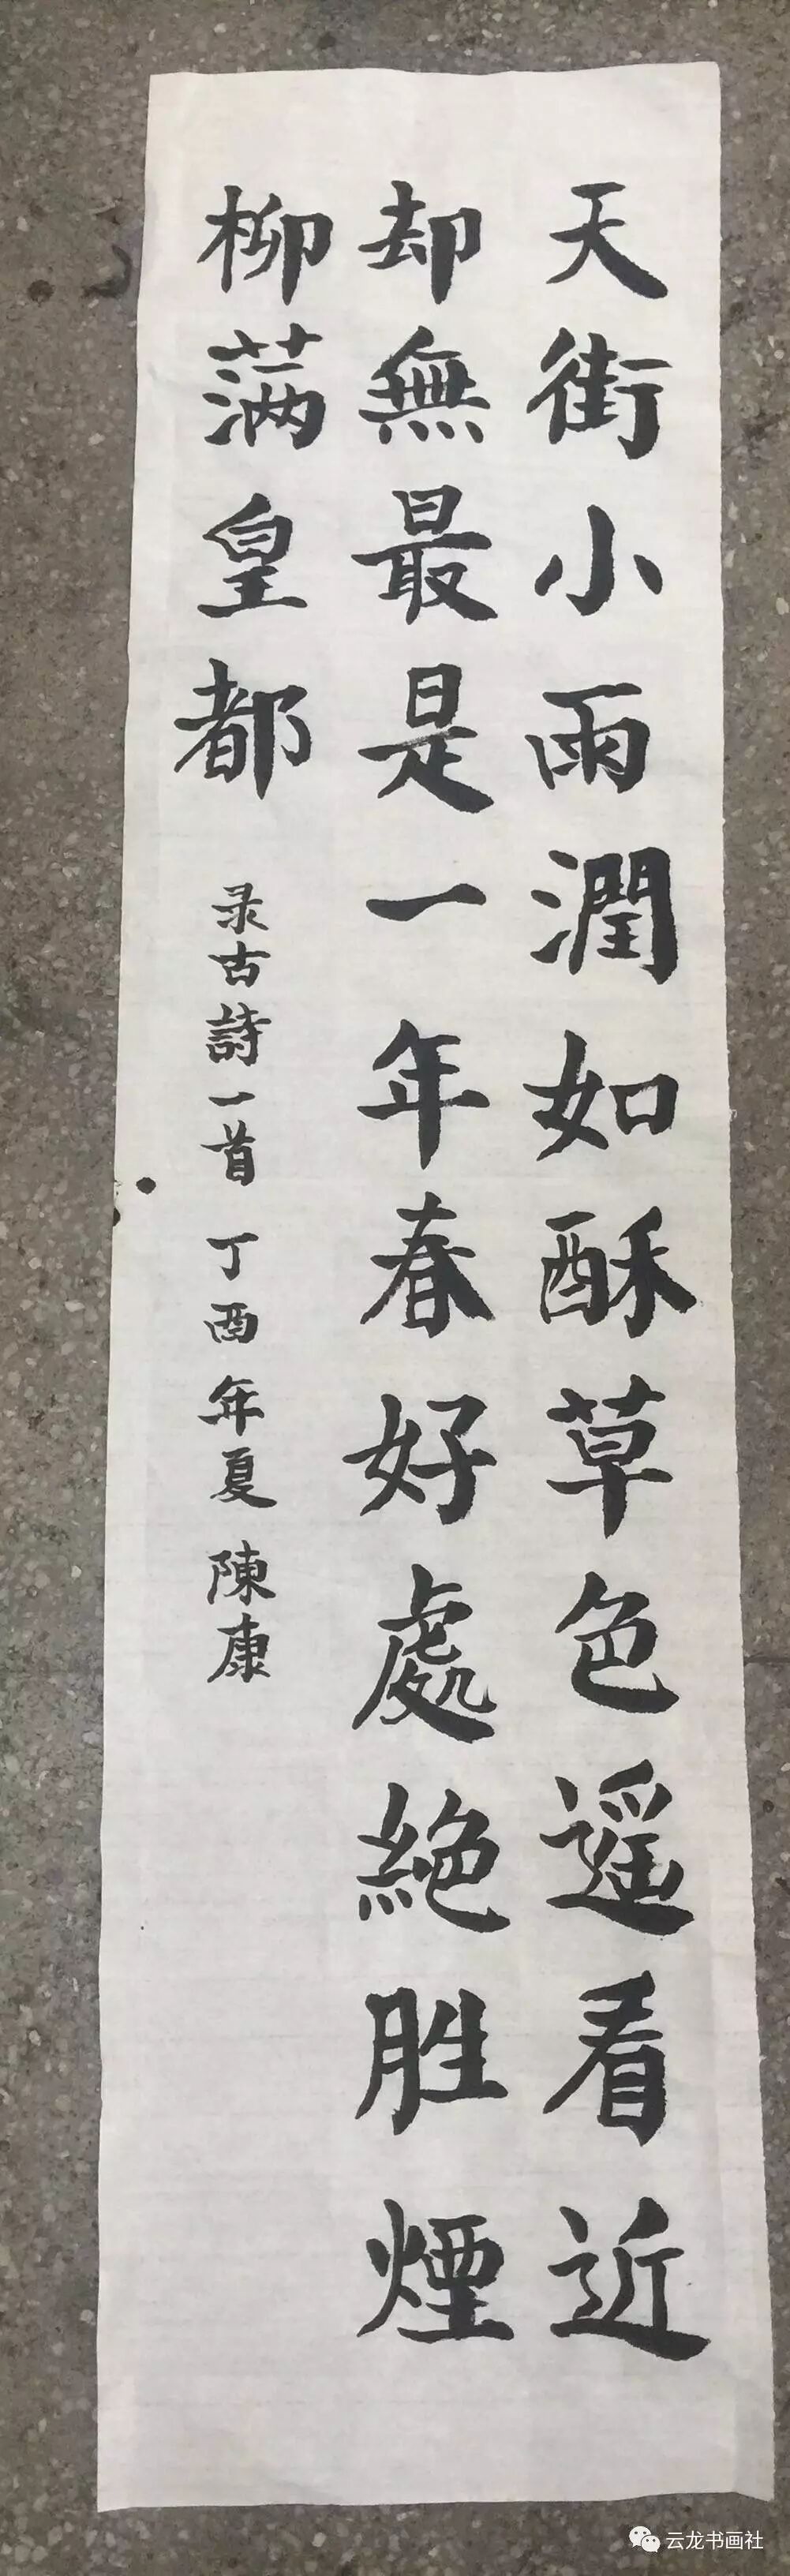 天街小雨潤如酥草色遥看近
却無最是一年春好處絶胜煙
柳满皇都
录古詩一首 丁酉年夏 陳康
云龙书画社